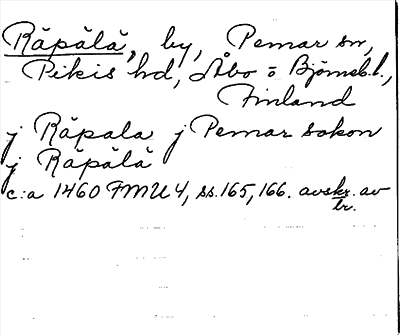 Räpälä, by, Pemar sn,
Pikis hd, Åbo o Björneb.l.,
Finland
j Räpala j Pemar sokon
j Räpälä
c:a 1460 FMU 4, ss.165,166. avskr. av
br.